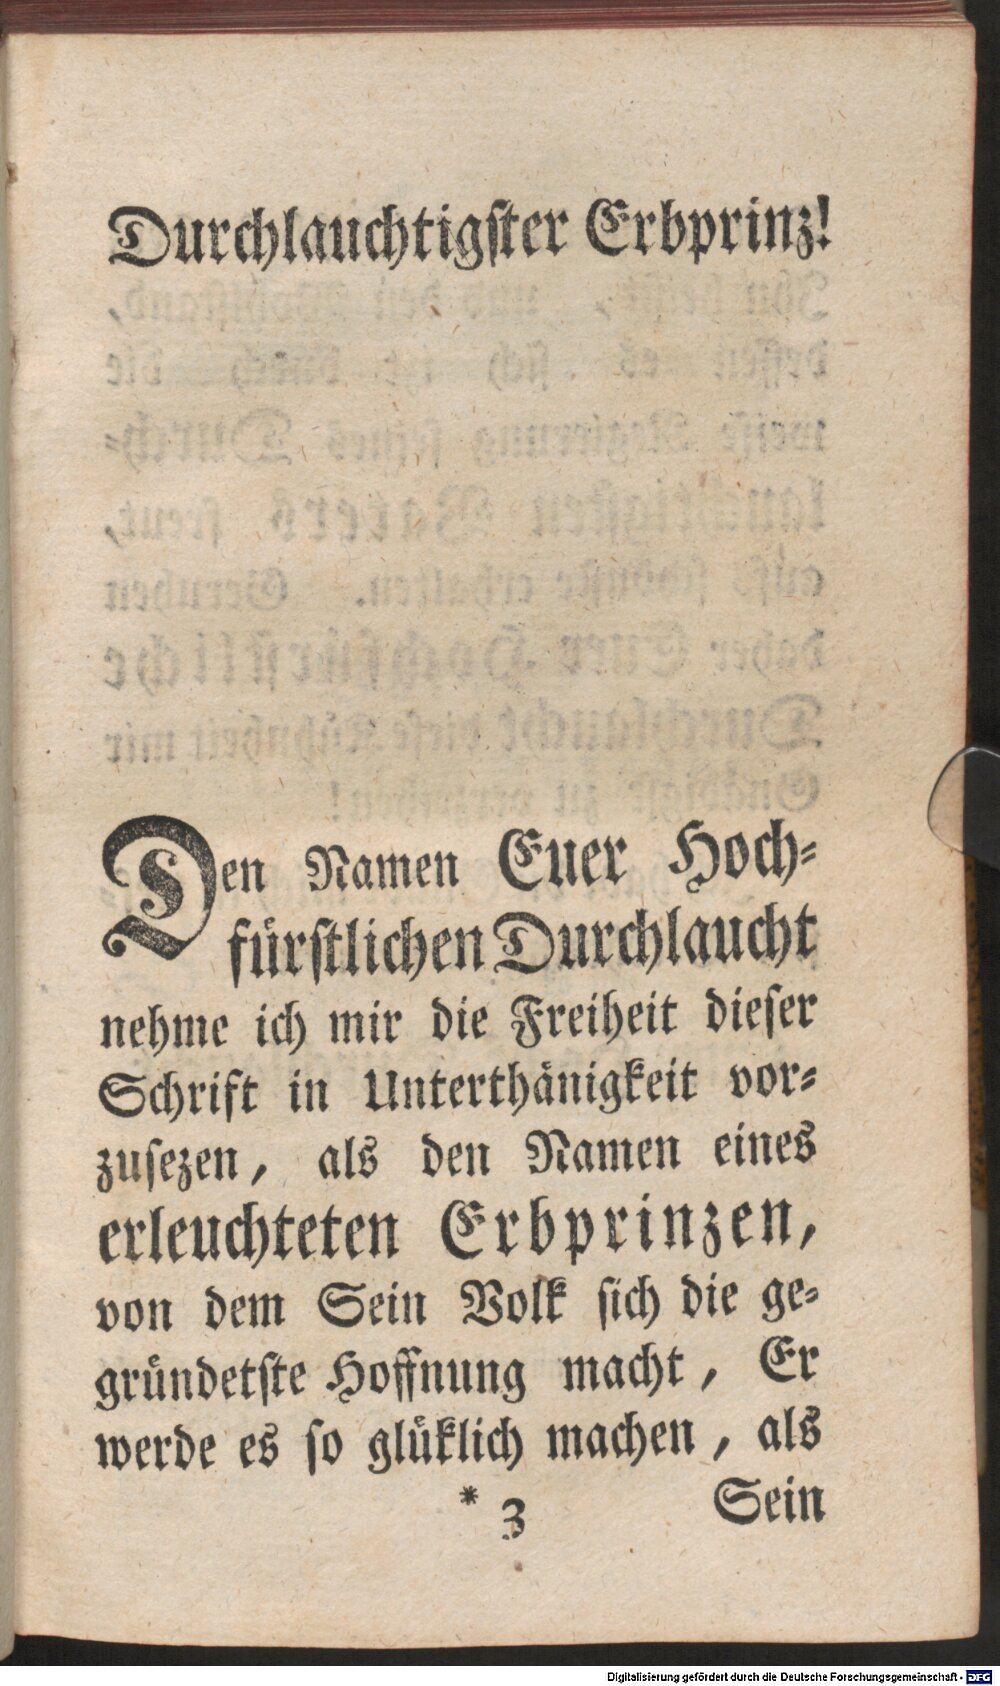 Durchlauchtigster Erbprinz!
Den Namen Euer Hoch-
fürstlichen Durchlaucht
nehme ich mir die Freiheit dieser
Schrift in Unterthänigkeit vor-
zusezen, als den Namen eines
erleuchteten Erbprinzen,
von dem Sein Volk sich die ge-
gründetste Hoffnung macht, Er
werde es so glüklich machen, als
* 3 Sein
Digitalisierung gefördert durch die Deutsche Forschungsgemeinschaft - DFG